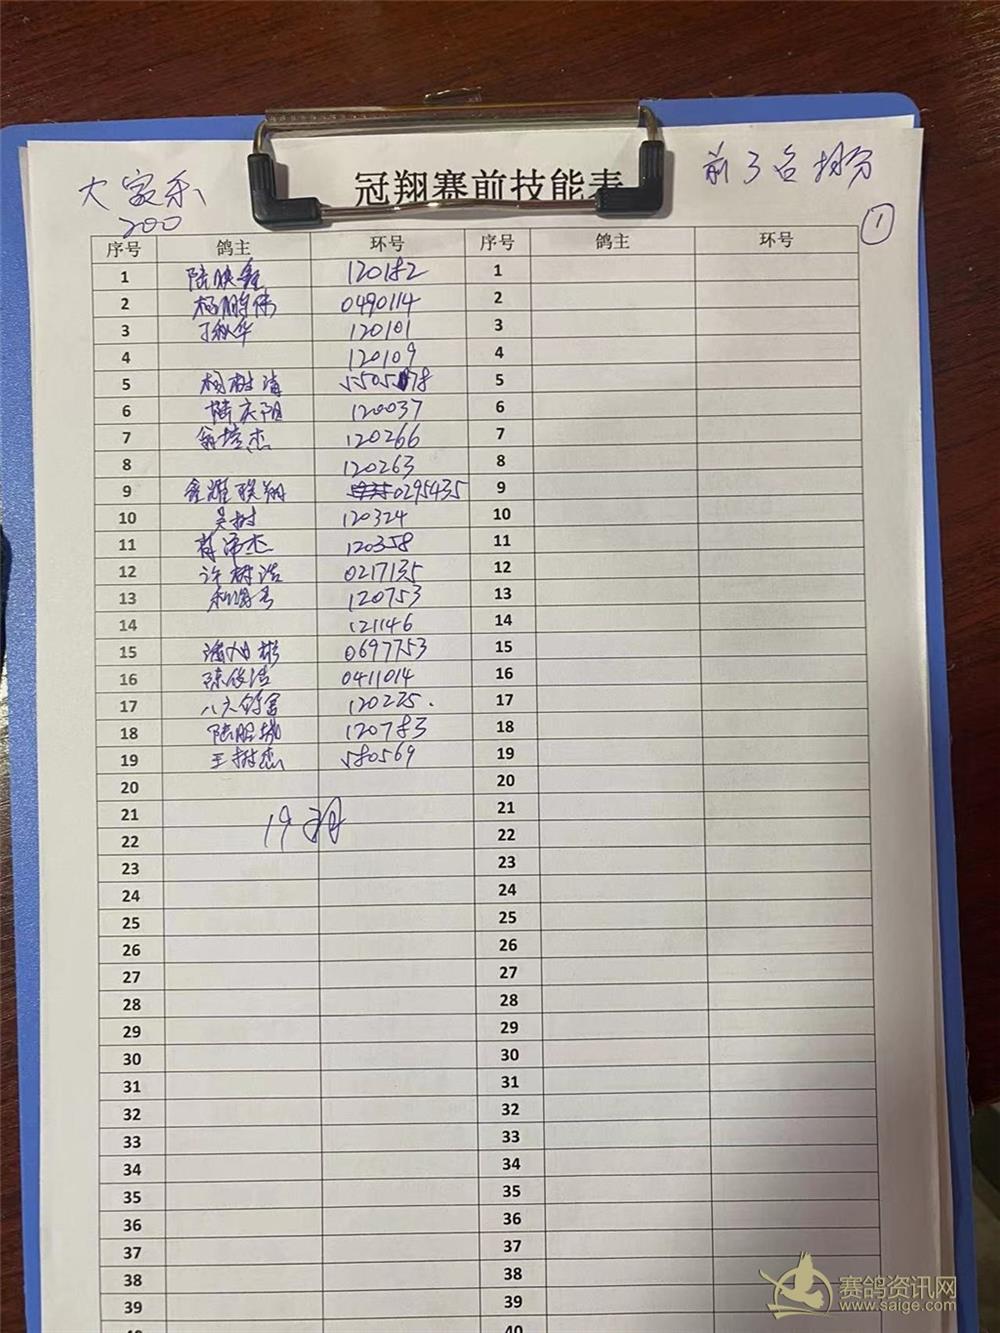 大家乐
200
冠翔赛前技能表
前3名均分
1
序号 鸽主 环号 序号 鸽主 环号
1 陆映鑫 120182 1
2 杨鹏伟 0490114 2
3 丁秋华 120101 3
4 120109 4
5 杨树清 5505178 5
6 陆庆阳 120037 6
7 翁培杰 120266 7
8 120263 8
9 鑫耀联翔 0295435 9
10 吴树 120324 10
11 杰 120358 11
12 许树浩 0217135 12
13 120753 13
14 121146 14
15 彬 0697753 15
16 陈俊浩 0411014 16
17 八六鸽舍 120225 17
18 陆鹏城 120783 18
19 王树杰 580569 19
20 20
21 21
22 22
19羽
23 23
24 24
25 25
26 26
27 27
28 28
29 29
30 30
31 31
32 32
33 33
34 34
35 35
36 36
37 37
38 38
39 39
40 40
赛鸽资讯网
www.saige.com